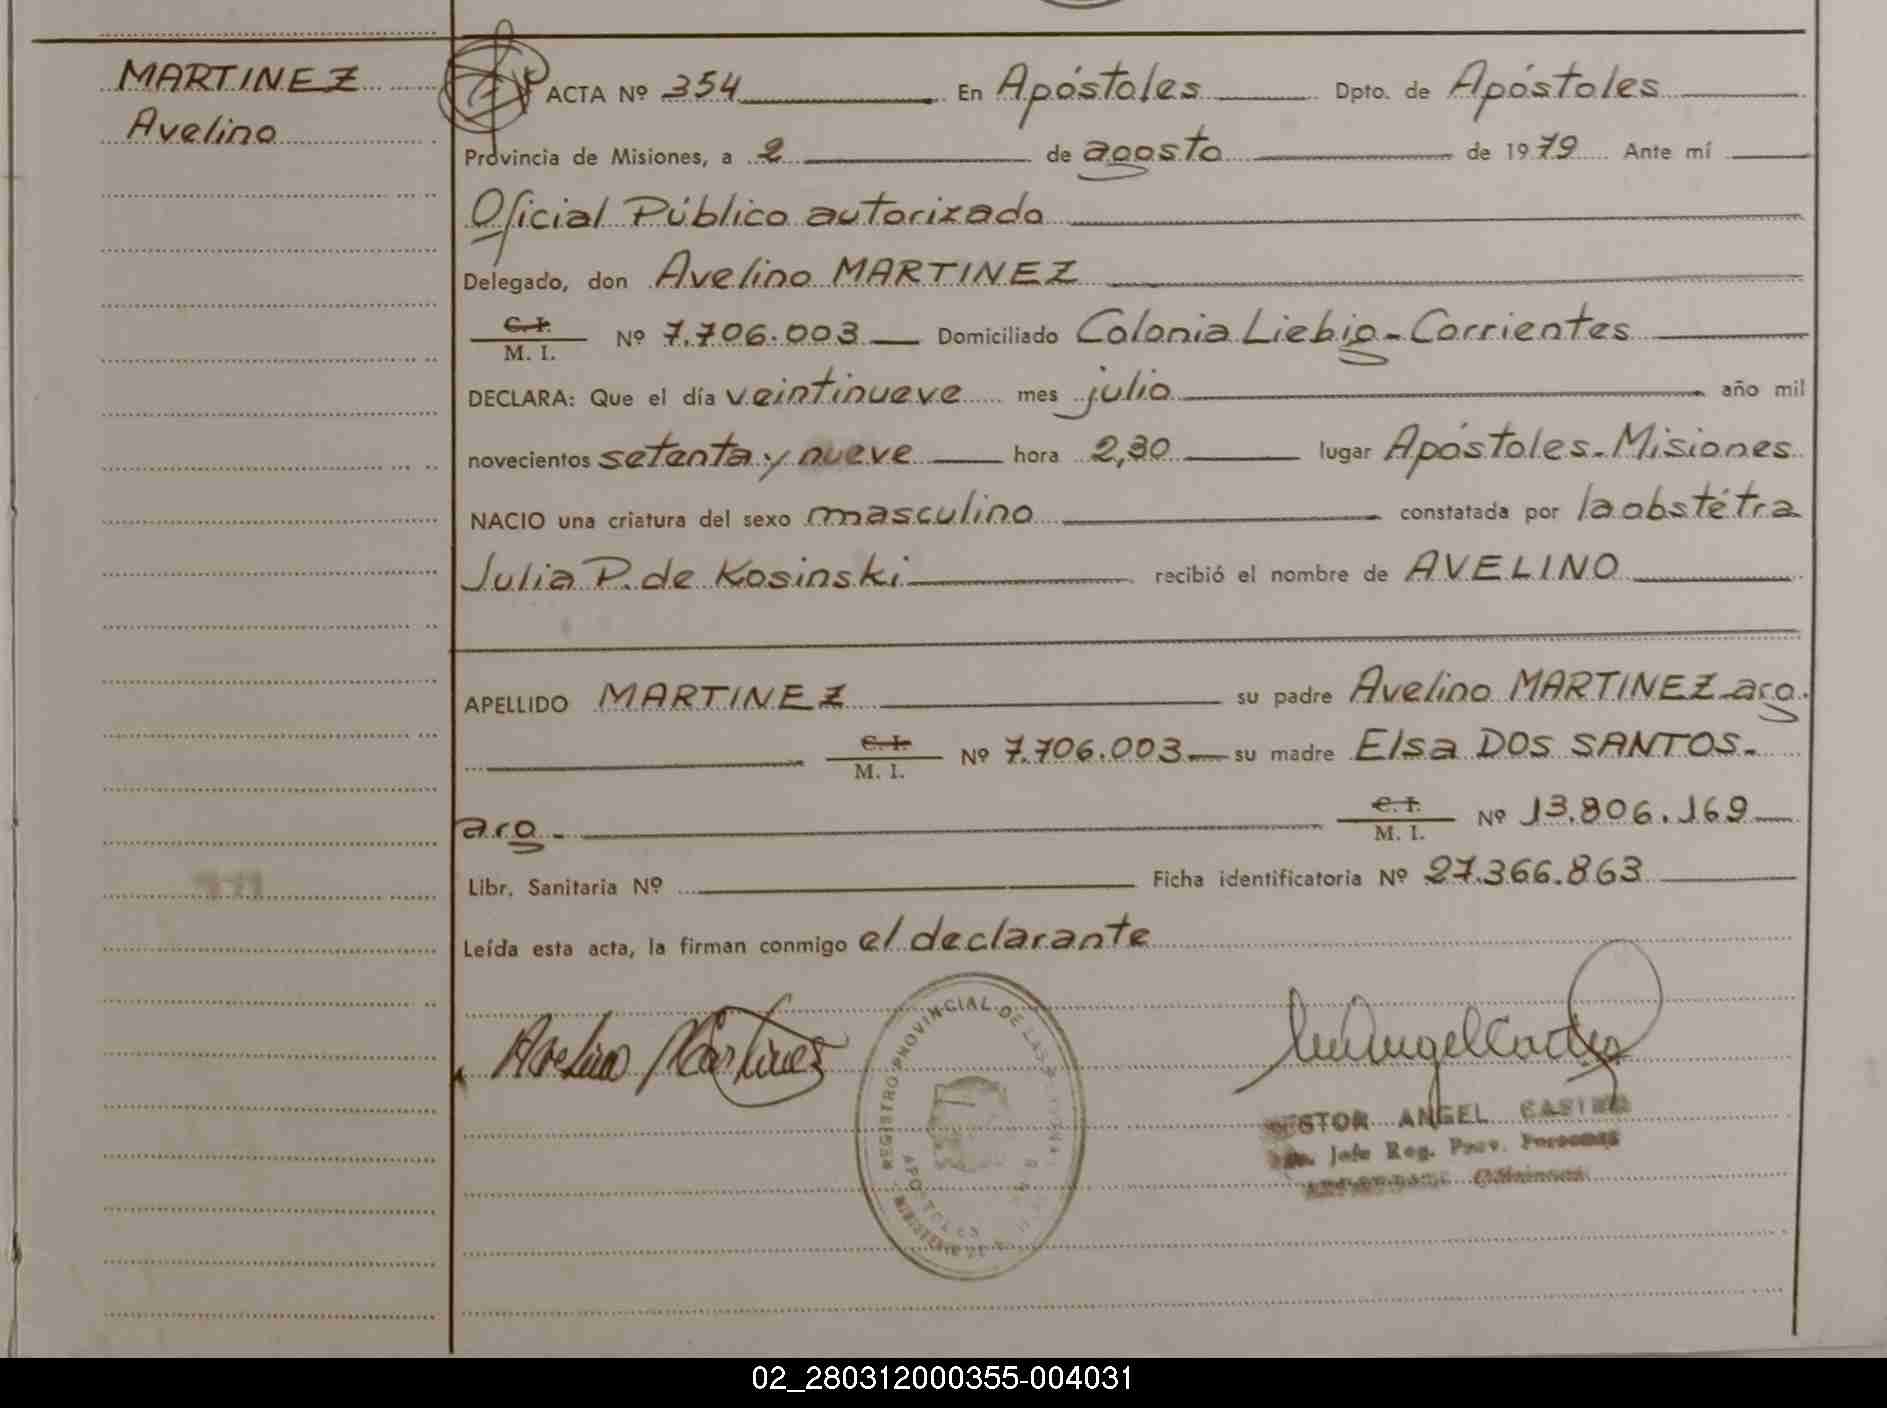 MARTINEZ
Avelino
ACTA Nº 354 En Apóstoles Dpto. de Apóstoles
Provincia de Misiones, a 2 de agosto de 1979 Ante mí
Oficial Público autorizado
Delegado, don Avelino MARTINEZ
C. I.
M. I. Nº 7.706.003 Domiciliado Colonia Liebig - Corrientes
DECLARA: Que el día veintinueve mes julio año mil
novecientos setenta y nueve hora 2,30 lugar Apóstoles - Misiones
NACIO una criatura del sexo masculino constatada por la obstétra
Julia P. de Kosinski recibió el nombre de AVELINO
APELLIDO MARTINEZ su padre Avelino MARTINEZ arg.
C. I.
M. I. Nº 7.706.003 su madre Elsa DOS SANTOS.
arg.
C. I.
M. I. Nº 13.806.169
Libr. Sanitaria Nº Ficha identificatoria Nº 27.366.863
Leída esta acta, la firman conmigo el declarante
Avelino Martinez
REGISTRO PROVINCIAL DE LAS
APOSTOLES
ANGEL
Jefe Reg. Prov. Personas
Misiones
02_280312000355-004031